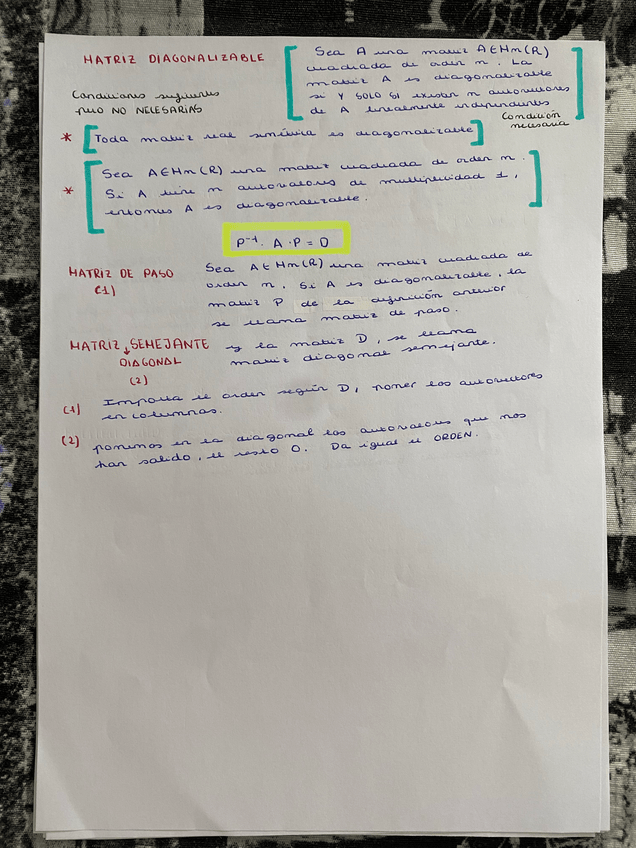 MATRIZ DIAGONALIZABLE
Sea A una matriz A∈Mn(R)
cuadrada de orden n. La
matriz A es diagonalizable
si Y SOLO SI existen n autovectores
de A linealmente independientes
Condición
necesaria
Condiciones suficientes
pero NO NECESARIAS
* Toda matriz real simétrica es diagonalizable
Sea A∈Mn(R) una matriz cuadrada de orden n.
* Si A tiene n autovalores de multiplicidad 1,
entonces A es diagonalizable.
P⁻¹. A · P = D
MATRIZ DE PASO
(1)
Sea A∈Mn(R) una matriz cuadrada de
orden n. Si A es diagonalizable, la
matriz P de la definición anterior
se llama matriz de paso.
MATRIZ SEMEJANTE
↓
DIAGONAL
(2)
y la matriz D, se llama
matriz diagonal semejante.
(1) Importa el orden según D, poner los autovectores
en columnas.
(2) ponemos en la diagonal los autovalores que nos
han salido, el resto 0. Da igual el ORDEN.